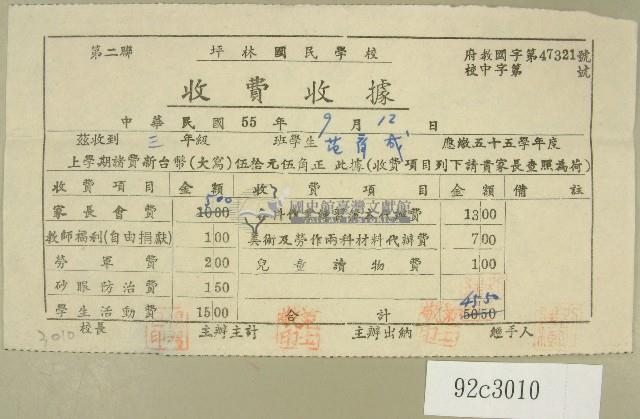 第二聯 坪林國民學校 府教國字第47321號
校中字第 號
收費收據
中華民國55年9月12日
茲收到三年級 班學生范 成 應繳五十五學年度
上學期諸費新台幣(大寫)伍拾元伍角正 此據(收費項目到下請貴家長查照為荷)
收費項目 金額 收費項目 金額 備註
家長會費 1000 500 代辦費 1300
教師福利(自由捐獻) 100 美術及勞作兩科材料代辦費 700
勞軍費 200 兒童讀物費 100
砂眼防治費 150
學生活動費 1500 合計 5050 4550
校長 主辦主計 主辦出納 經手人
3010
國史館臺灣文獻館
92c3010